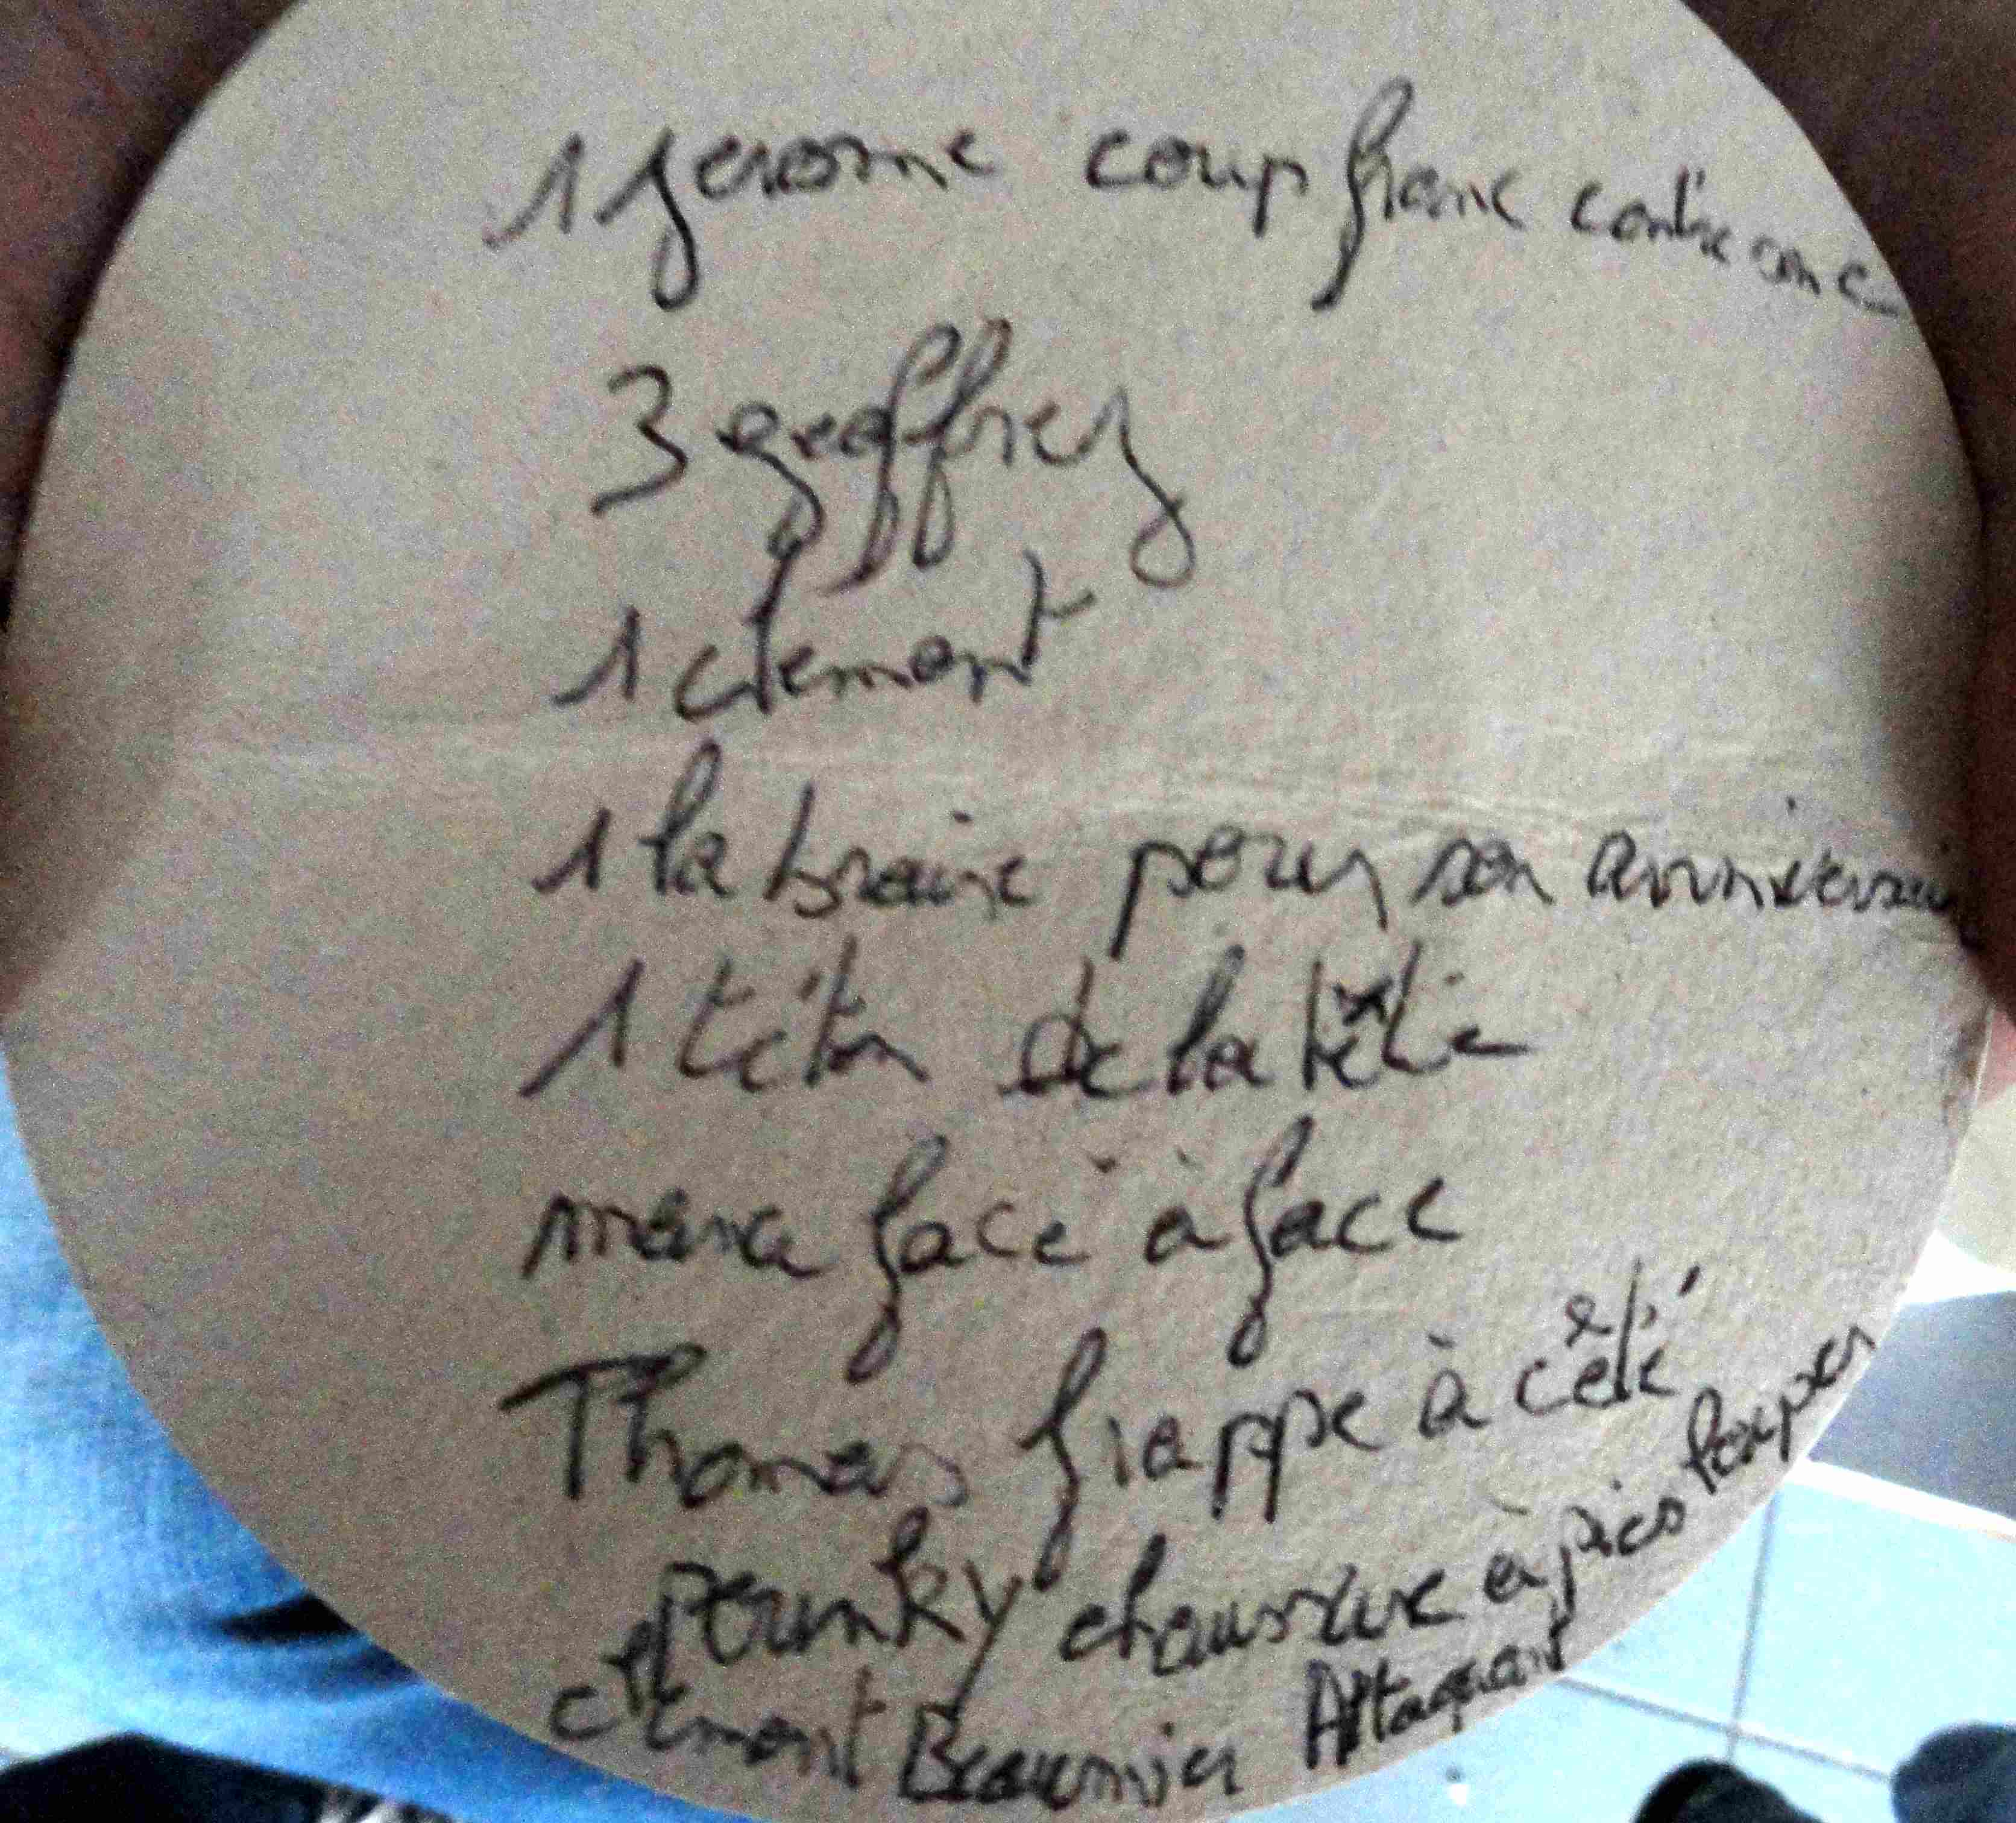 1 jerome coup franc contre
3 geoffrey
1 clement
1 la braise pour son anniversai
1 téton de la tête
face à face
Thomas frappe à côté
chaussure à
clément Beaunier Attaquant